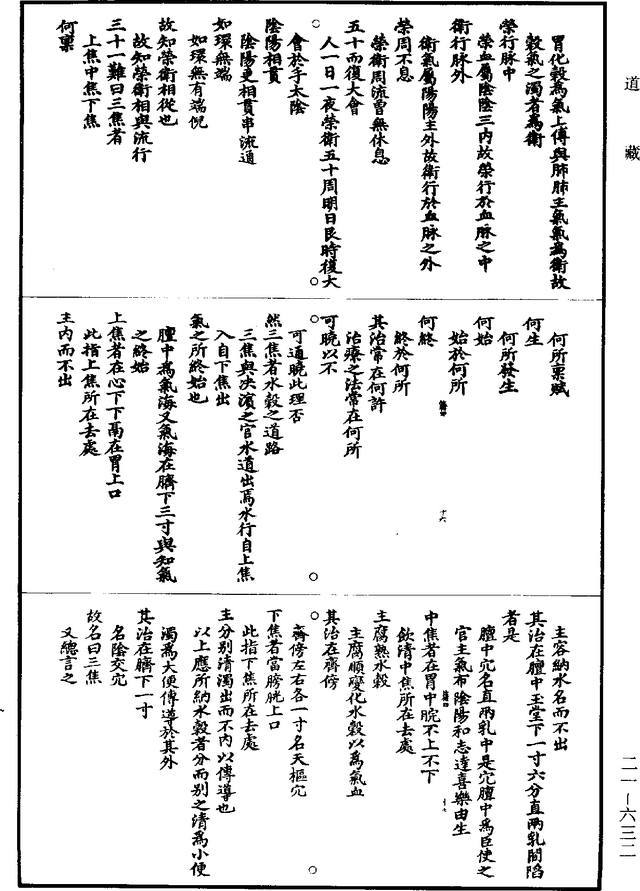 道藏
胃化穀為氣上傳與肺肺主氣氣為衛故
穀氣之濁者為衛
榮行脉中
榮血屬陰陰三内故榮行於血脉之中
衛行脉外
衛氣屬陽陽主外故衛行於血脉之外
榮周不息
榮衛周流曾無休息
五十而復大會
人一日一夜榮衛五十周明日艮時復大
會於手太陰
陰陽相貫
陰陽更相貫串流通
如環無端
如環無有端倪
故知榮衛相從也
故知榮衛相與流行
三十一難曰三焦者
上焦中焦下焦
何稟
何所稟賦
何生
何所發生
何始
始於何所
何終
終於何所
其治常在何許
治療之法常在何所
可曉以不
可通曉此理否
然三焦者水穀之道路
三焦與決瀆之官水道出焉水行自上焦
入自下焦出
氣之所終始也
膻中為氣海又氣海在臍下三寸與知氣
之終始
上焦者在心下下鬲在胃上口
此指上焦所在去處
主内而不出
十六
主容納水名而不出
其治在膻中玉堂下一寸六分直兩乳間陷
者是
膻中穴名直兩乳中是穴膻中為臣使之
官主氣布陰陽和志達喜樂由生
中焦者在胃中脘不上不下
飲清中焦所在去處
主腐熟水穀
主腐順變化水穀以為氣血
其治在齊傍
齊傍左右各一寸名天樞穴
下焦者當膀胱上口
此指下焦所在去處
主分别清濁出而不内以傳導也
以上應所納水穀者分而别之清為小便
濁為大便傳導於其外
其治在臍下一寸
名陰交穴
故名曰三焦
又總言之
二一—六三二